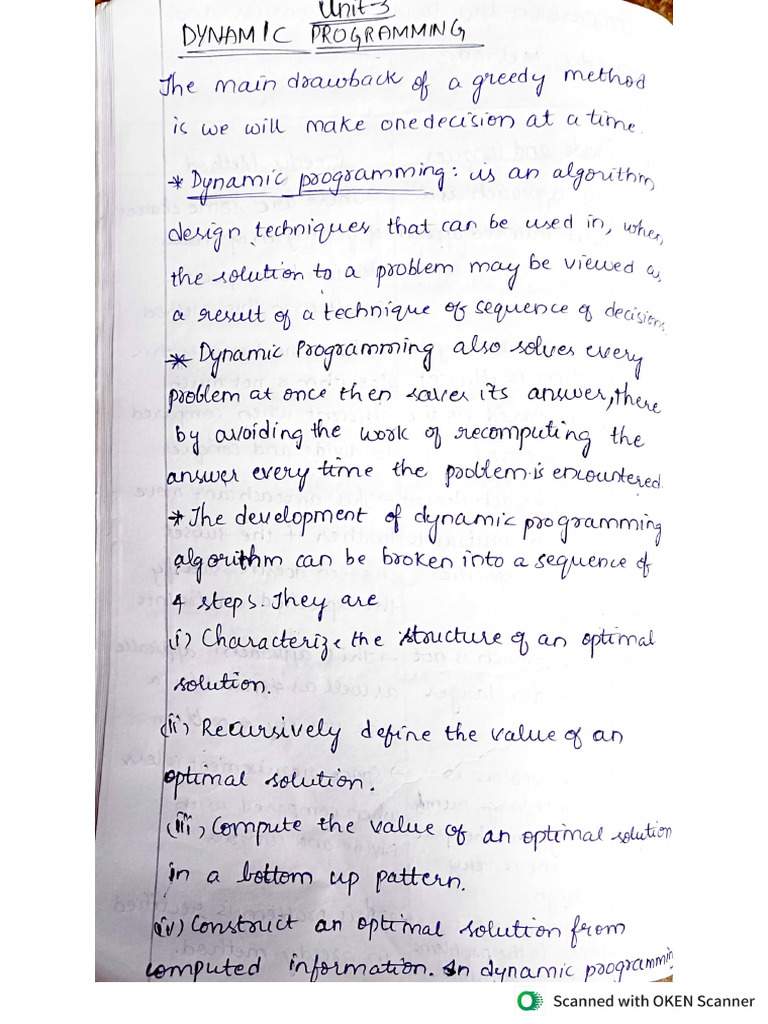 Unit-3
DYNAMIC PROGRAMMING
The main drawback of a greedy method
is we will make one decision at a time.
* Dynamic programming: us an algorithm
design techniques that can be used in, when
the solution to a problem may be viewed as
a result of a technique of sequence of decisions
* Dynamic Programming also solves every
problem at once then saves its answer, there
by avoiding the work of recomputing the
answer every time the problem is encountered.
* The development of dynamic programming
algorithm can be broken into a sequence of
4 steps. They are
(i) Characterize the structure of an optimal
solution.
(ii) Recursively define the value of an
optimal solution.
(iii) Compute the value of an optimal solution
in a bottom up pattern.
(iv) Construct an optimal solution from
computed information. In dynamic programming
Scanned with OKEN Scanner